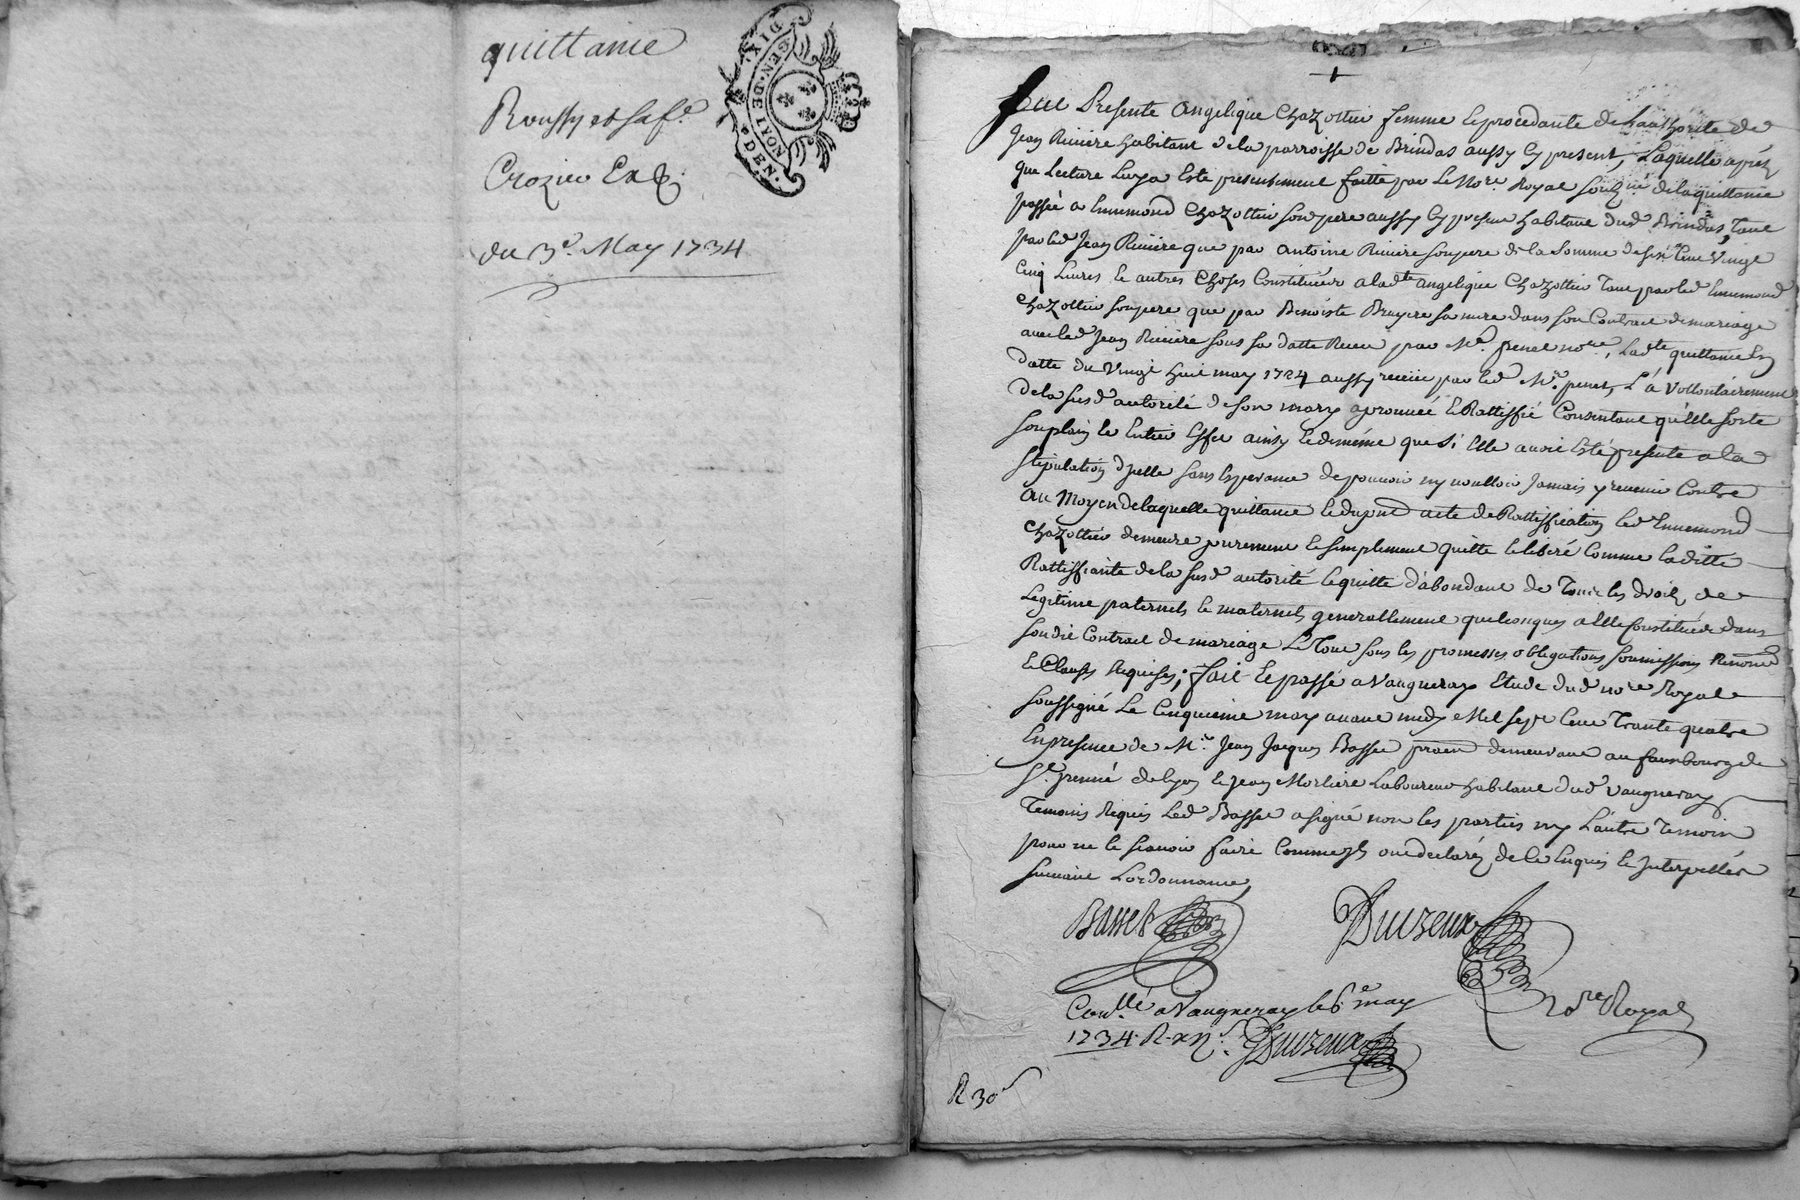 quittance
Roussy et sa fe
Crozier Exp.
du 3e. May 1734
GEN. DE LYON
DIX DEN.
Fut Presente Angelique Chazottier femme et procedante de L'authorité de
Jean Riviere habitant de la parroisse de Brindas aussy cy present, Laquelle aprés
que Lecture Luy a Esté presentement faitte par Le Nore. Royal souz.né de la quittance
passée a Ennemond Chazottier son pere aussy cy present habitant dud. Brindas, Tant
par led Jean Riviere que par Antoine Riviere son pere de la Somme de sept Cent Vingt
Cinq Livres et autres choses Constituées a ladte angelique Chazottier Tant par led Ennemond
Chazottier son pere que par Benoiste Bruyere sa mere dans son Contract de mariage
avec led Jean Riviere sous sa datte Receu par Me. penet nore., Ladte quittance En
datte du Vingt huit may 1724 aussy receüe par led Me. penet, L'a Vollontairement
de la susd autorité de son mary aprouvée et Rattiffié Consentant qu'elle sorte
son plain et Entier Effet ainsy et de méme que si Elle avoit Esté presente a la
stipulation d'jcelle sans Esperance de pouvoir ny voulloir Jamais y revenir Contre
Au Moyen de laquelle quittance et du pnt acte de Rattiffication led Ennemond
Chazottier demeure purement et simplement quitte et liberé Comme laditte
Rattiffiante de la susd autorité le quitte d'abondant de Tous les droits de
Legitime paternels et maternels generallement quelconques a Elle Constitués dans
son dit Contract de mariage Le Tout sous les promesses obligations soumissions Renon.ons
et Clauses Requises; fait et passé a Vaugneray Etude dud nore Royal
soussigné Le Cinquieme may avant midy Mil sept Cent Trante quatre
En presence de Mre. Jean Jacques Basset praen demeurant au fauxbourg de
St. jrenné de lyon et Jean Morliere Laboureur habitant dud Vaugneray
Temoins Requis Led Basset a signé non les parties ny L'autre Temoin
pour ne le scavoir faire Comme ils ont declaré de ce Enquis et Interpellés
suivant L'ordonnance,
Basset
Duvzeux
nore Royal
Con.llé a Vaugneray le 6e may
1734. R. xns. Duvzeux
R 30s